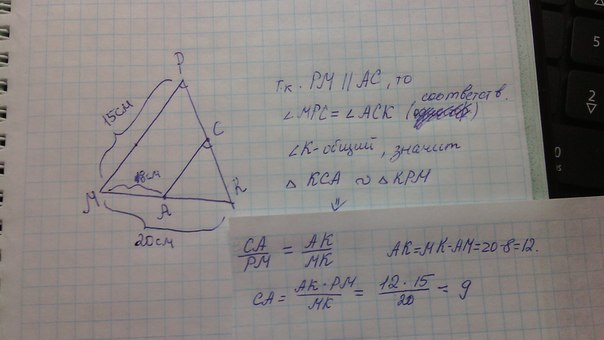 P
15см
C
8см
M
A
K
20см
Т.к. PM || AC, то
∠MPC = ∠ACK (соответств.)
∠K - общий, значит
△ KCA ∾ △ KPM
⇓
CA/PM = AK/MK
AK = MK - AM = 20 - 8 = 12.
CA = AK · PM / MK = 12 · 15 / 20 = 9
5
2